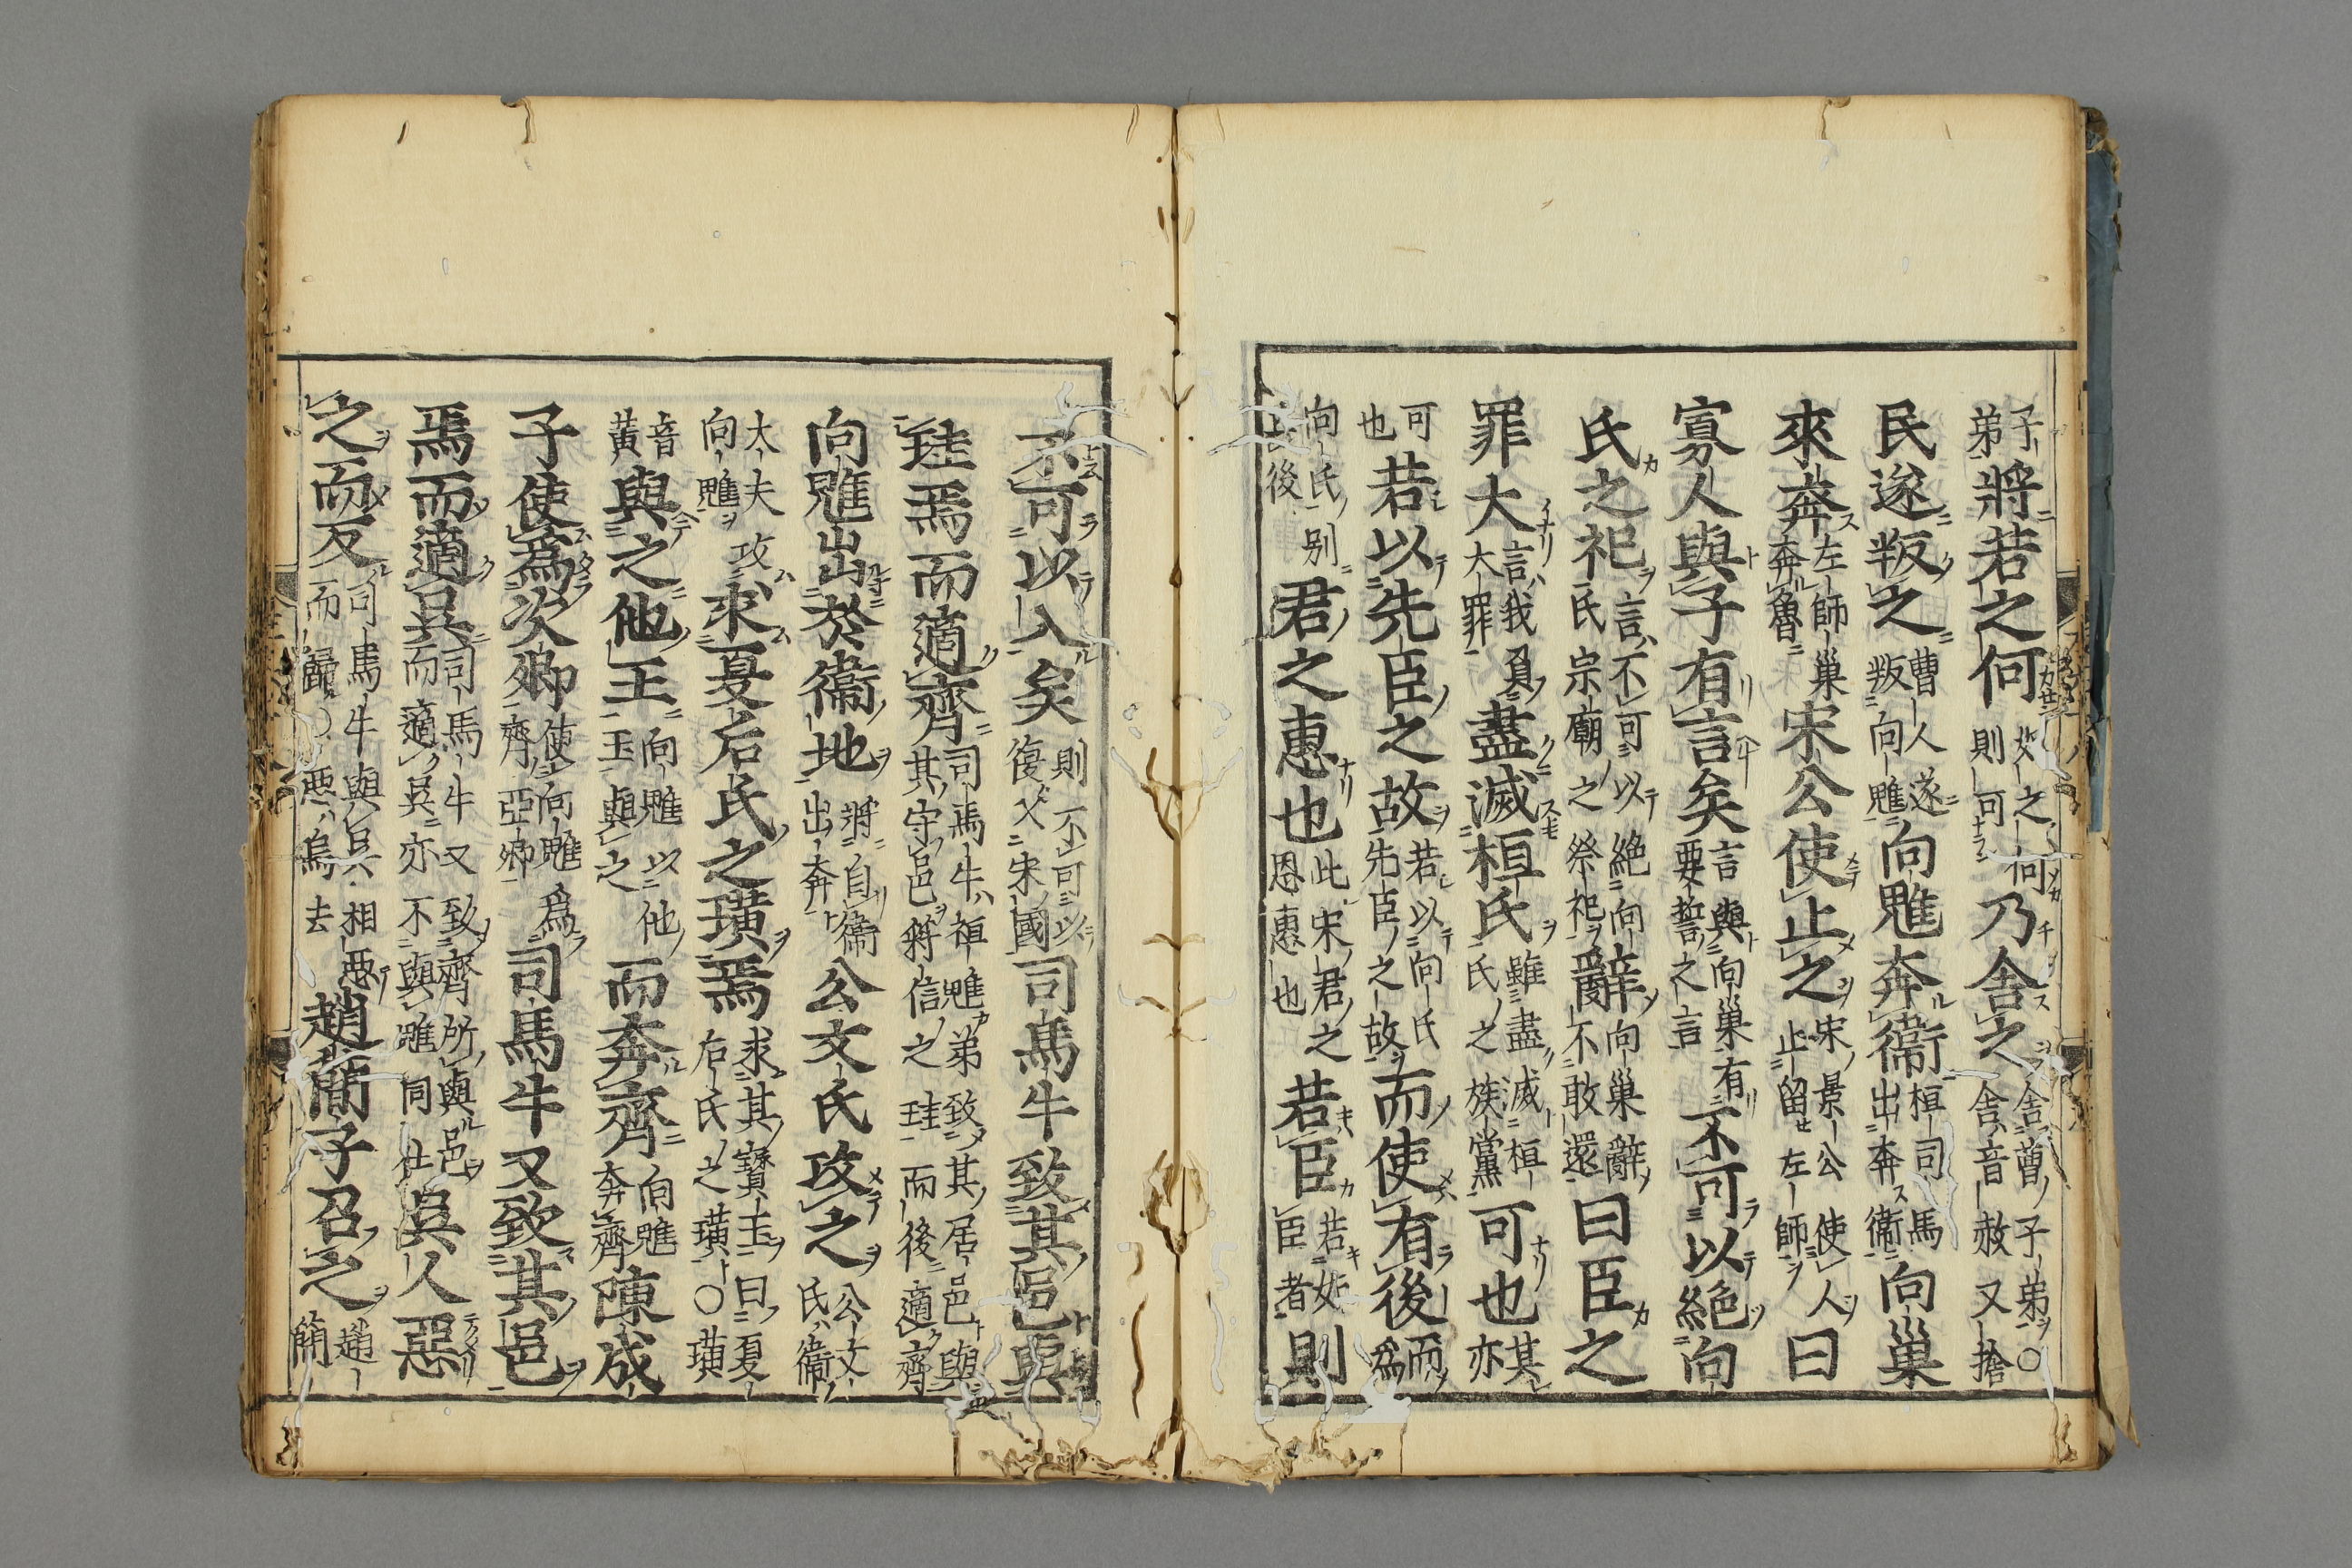 子弟將若之何如之何則可乃舍之舍曹子弟○舍音赦又捨
民遂叛之曹人遂叛向魋向魋奔衞桓司馬出奔衞向巢
來奔左師巢奔魯宋公使止之宋景公使人止留左師曰
寡人與子有言矣言與向巢有要誓之言不可以絶向
氏之祀言不可以絶向氏宗廟之祭祀辭向巢辭不敢還曰臣之
罪大言我負大罪盡滅桓氏雖盡滅桓氏之族黨可也其亦
可也若以先臣之故若以向氏先臣之故而使有後而爲
向氏別後君之惠也此宋君之恩惠也若臣若如臣者則
不可以入矣則不可以復入宋國司馬牛致其邑與
珪焉而適齊司馬牛桓魋弟致其居邑與其守邑符信之珪而後適齊
向魋出於衞地將自衞出奔公文氏攻之公文氏衞
大夫攻向魋求夏后氏之璜焉求其寶玉曰夏后氏之璜○璜
音黄與之他玉向魋以他玉與之而奔齊向魋奔齊陳成
子使爲次卿使向魋爲齊亞卿司馬牛又致其邑
焉而適吳司馬牛又致齊所與邑而適吳亦不與魋同仕吳人惡
之而反司馬牛與吳相惡而歸○惡烏去趙簡子召之趙簡